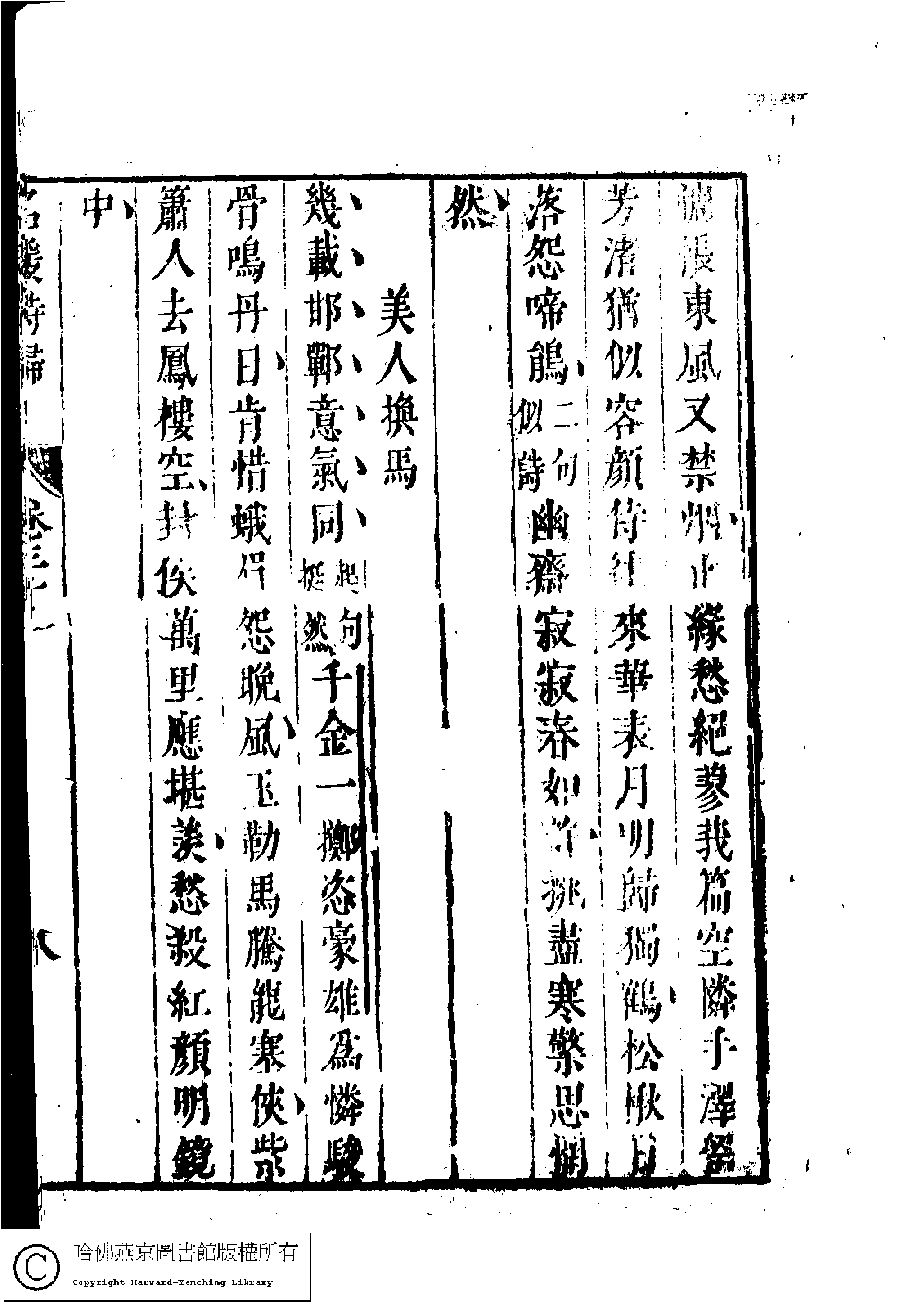 悵東風又禁烟止緣愁絕蓼莪篇空憐手澤
芳渚猶似容顏待往來華表月明歸獨鶴松楸月
落怨啼鵑二句似詩幽齋寂寂春如許挑盡寒檠思惘
然
美人換馬
幾載邯鄲意氣同起句挺然千金一擲恣豪雄為憐駿
骨鳴丹日肯惜蛾眉怨晚風玉勒馬騰能寒俠紫
簫人去鳳樓空封侯萬里應堪羨愁殺紅顏明鏡
中
名媛詩歸
卷三十一
八
哈佛燕京圖書館版權所有
Copyright Harvard-Yenching Library